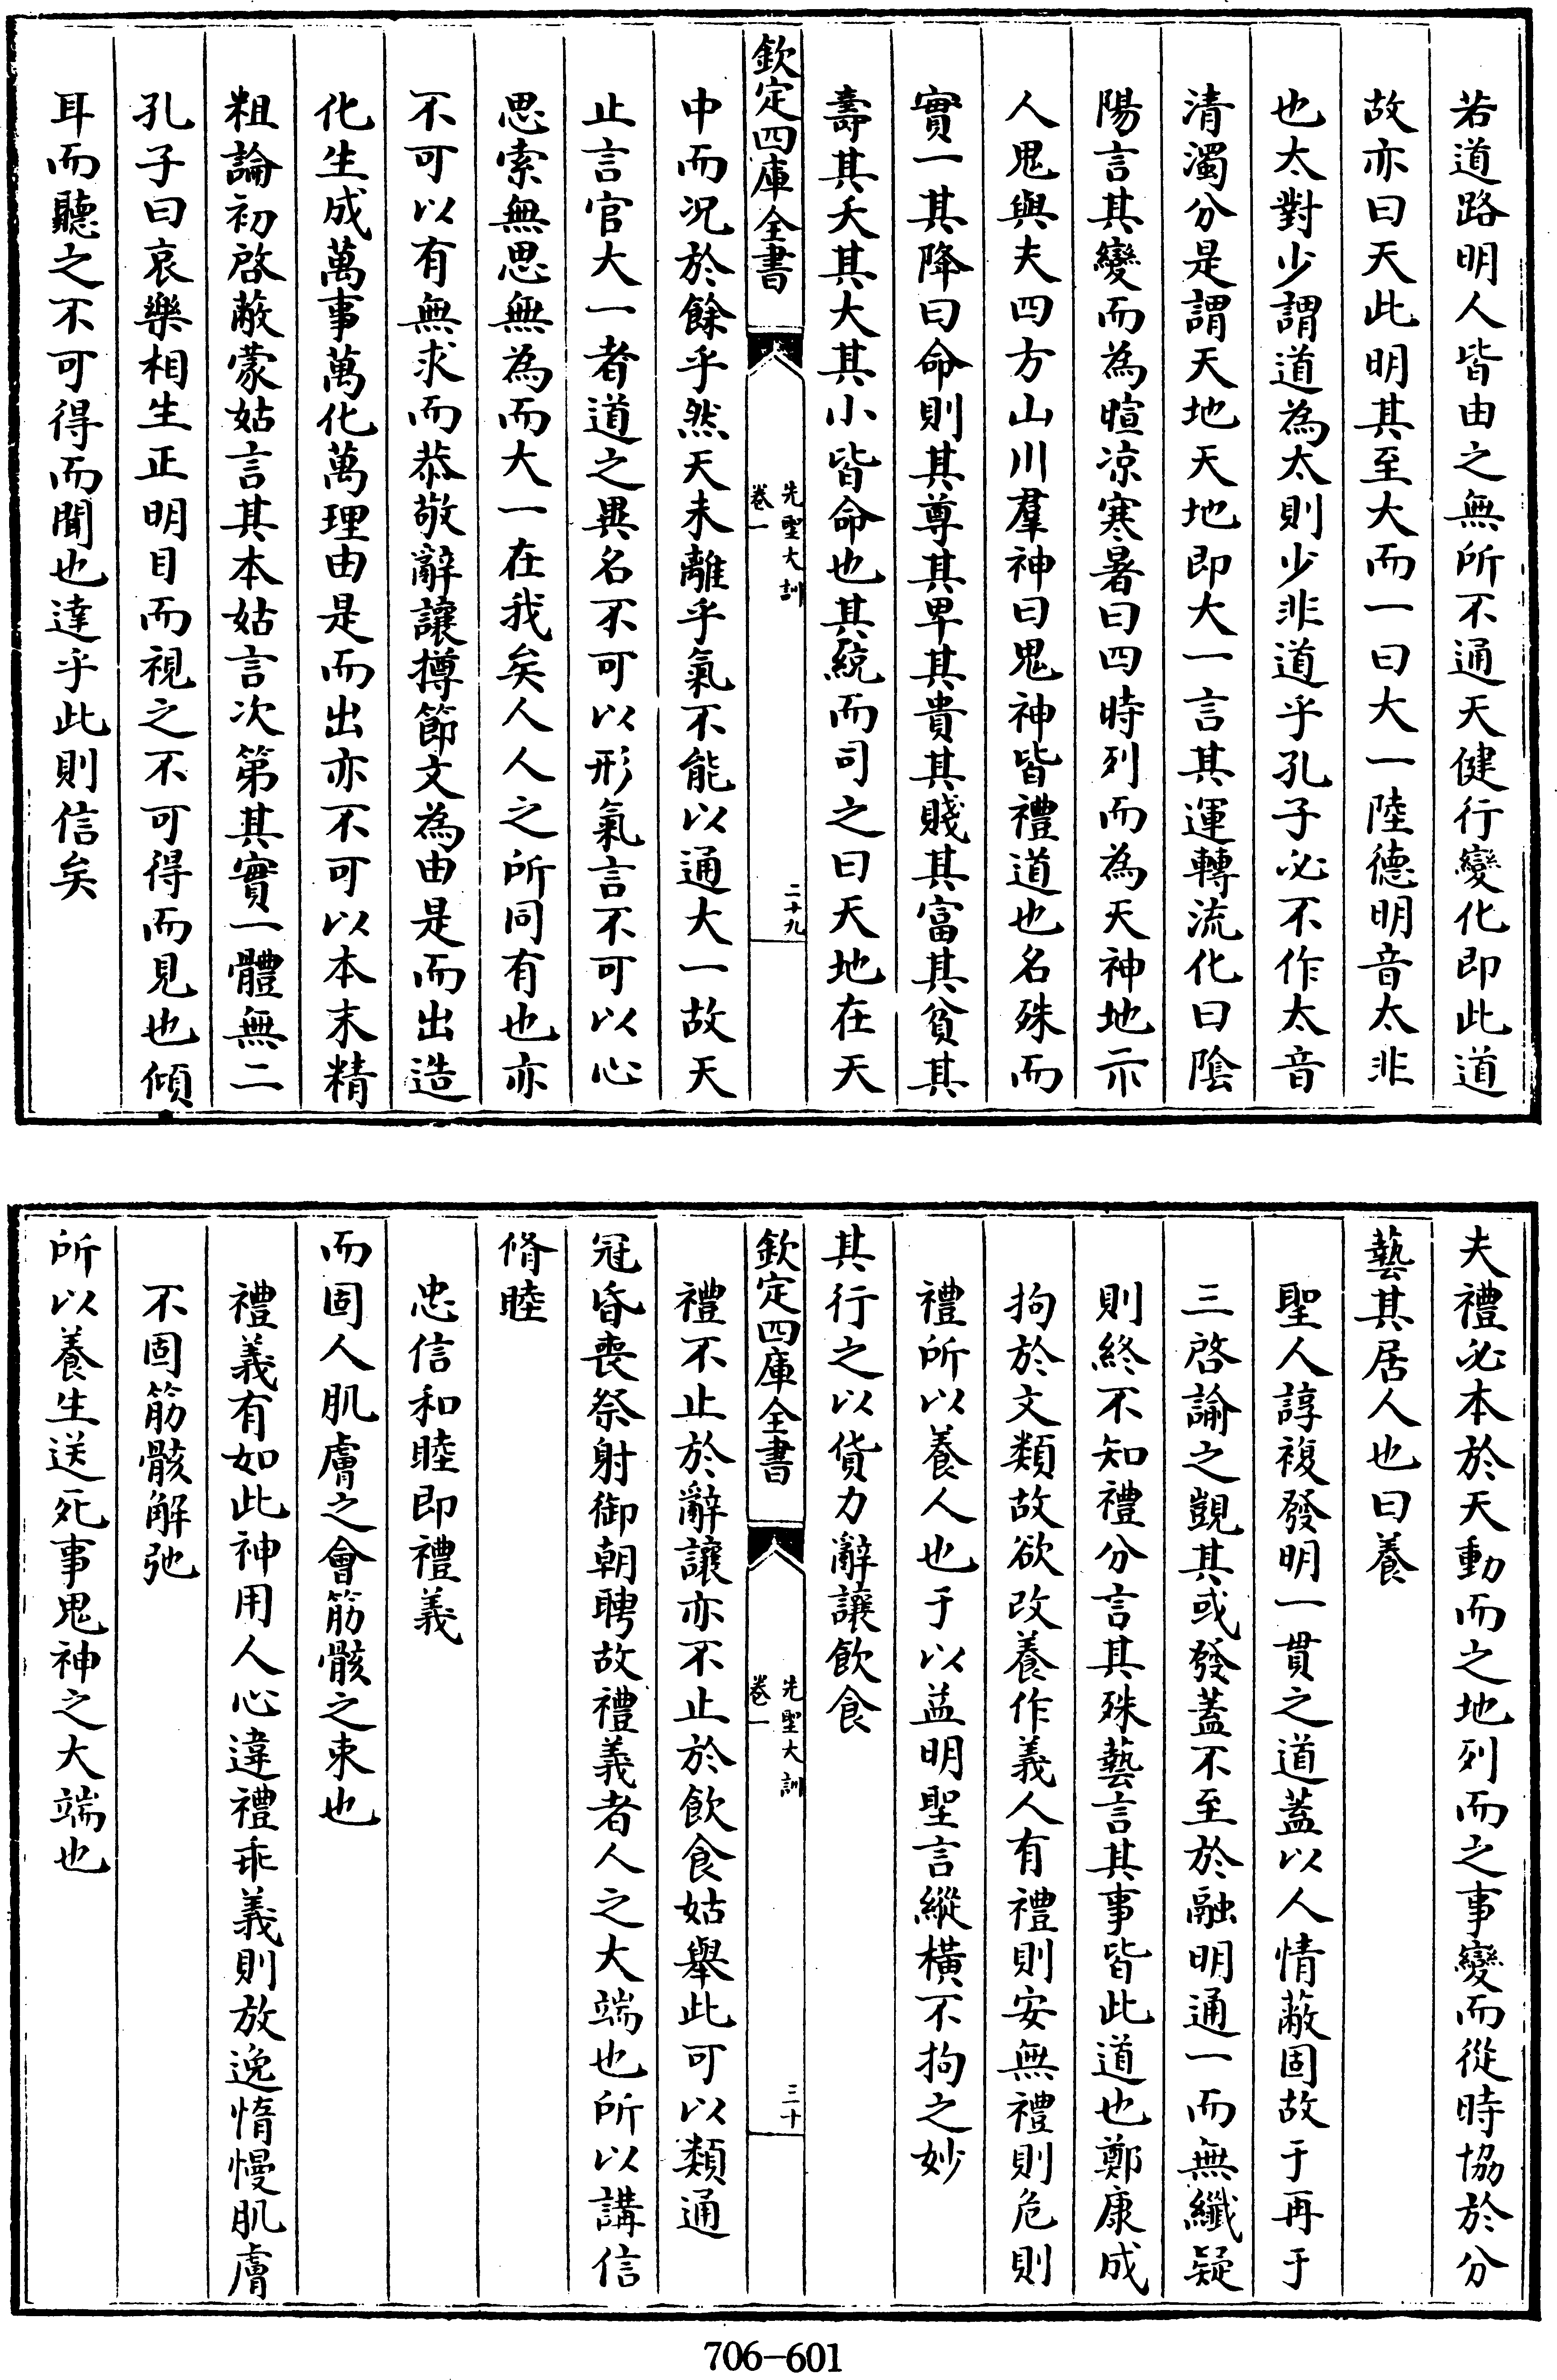 若道路明人皆由之無所不通天健行變化即此道
故亦曰天此明其至大而一曰大一陸德明音太非
也太對少謂道為太則少非道乎孔子必不作太音
清濁分是謂天地天地即大一言其運轉流化曰陰
陽言其變而為暄凉寒暑曰四時列而為天神地示
人鬼與夫四方山川羣神曰鬼神皆禮道也名殊而
實一其降曰命則其尊其卑其貴其賤其富其貧其
壽其夭其大其小皆命也其統而司之曰天地在天
欽定四庫全書
先聖大訓
卷一
二十九
中而况於餘乎然天未離乎氣不能以通大一故天
止言官大一者道之異名不可以形氣言不可以心
思索無思無為而大一在我矣人人之所同有也亦
不可以有無求而恭敬辭讓撙節文為由是而出造
化生成萬事萬化萬理由是而出亦不可以本末精
粗論初啓蔽蒙姑言其本姑言次第其實一體無二
孔子曰哀樂相生正明目而視之不可得而見也傾
耳而聽之不可得而聞也達乎此則信矣
夫禮必本於天動而之地列而之事變而從時協於分
藝其居人也曰養
聖人諄複發明一貫之道蓋以人情蔽固故于再于
三啓論之覬其或發蓋不至於融明通一而無纖疑
則終不知禮分言其殊藝言其事皆此道也鄭康成
拘於文類故欲改養作義人有禮則安無禮則危則
禮所以養人也于以益明聖言縱橫不拘之妙
其行之以貨力辭讓飲食
欽定四庫全書
先聖大訓
卷一
三十
禮不止於辭讓亦不止於飲食姑舉此可以類通
冠昏喪祭射御朝聘故禮義者人之大端也所以講信
脩睦
忠信和睦即禮義
而固人肌膚之會筋骸之束也
禮義有如此神用人心違禮乖義則放逸惰慢肌膚
不固筋骸解弛
所以養生送死事鬼神之大端也
706-601